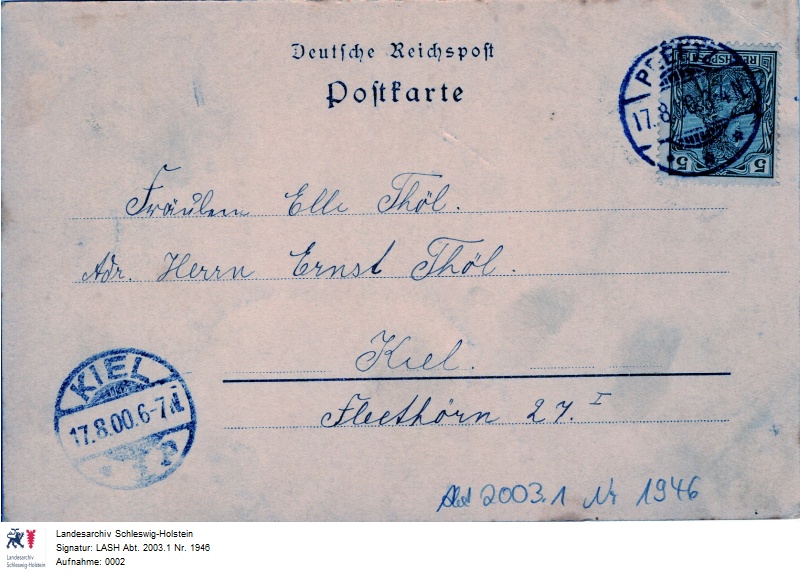 Deutsche Reichspost
Postkarte
PREETZ
17.8.00.
REICHSPOST
5 5
Fräulein Elle Thöl.
Adr. Herrn Ernst Thöl.
Kiel.
Fleethörn 27. I
KIEL
17.8.00.6-7N.
Abt 2003.1 Nr 1946
Landesarchiv Schleswig-Holstein
Signatur: LASH Abt. 2003.1 Nr. 1946
Aufnahme: 0002
Landesarchiv
Schleswig-Holstein